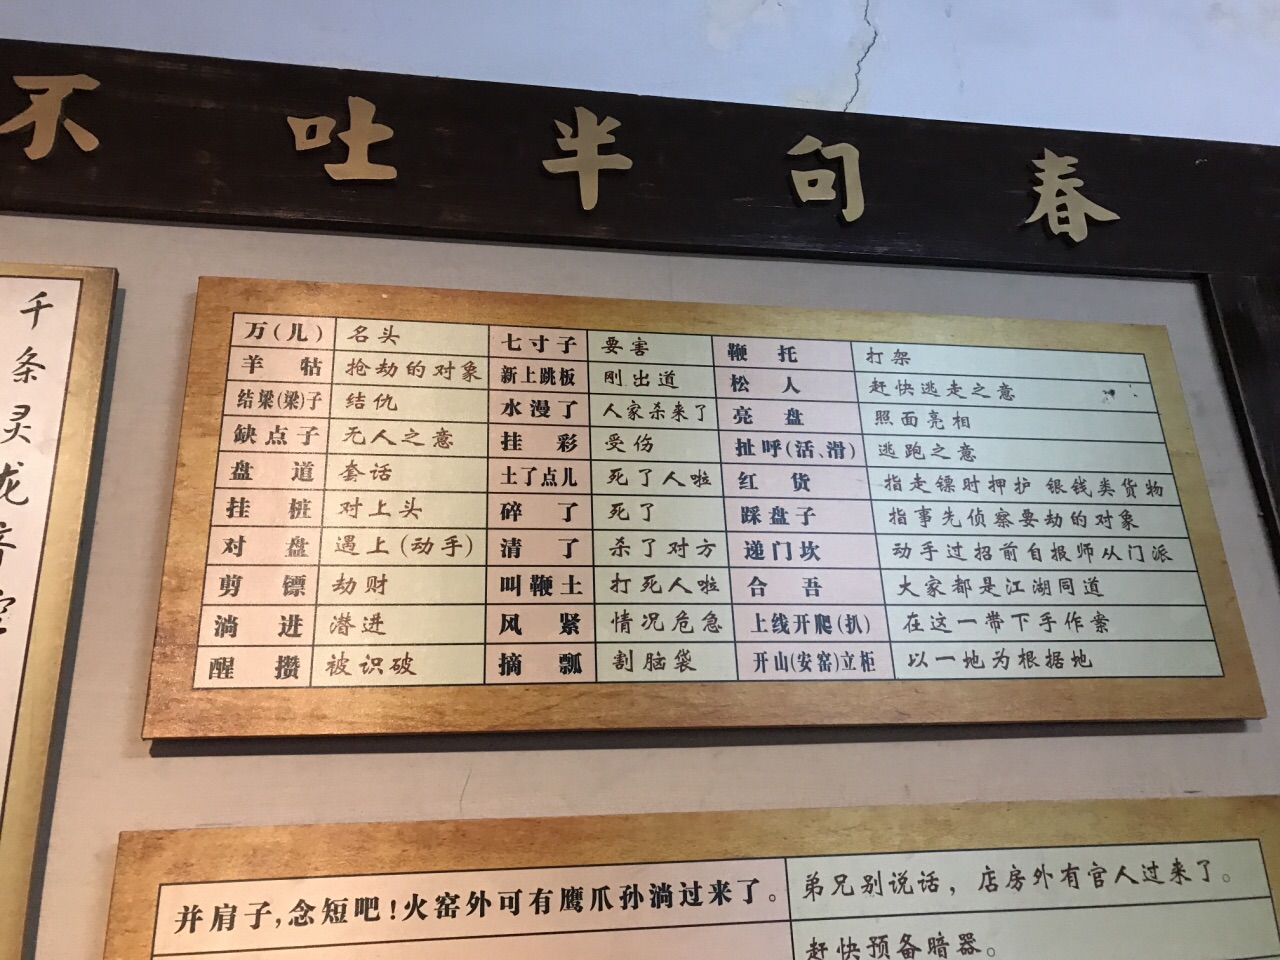 不吐半句春
千条灵龙
万(儿) 名头 七寸子 要害 鞭托 打架
羊牯 抢劫的对象 新上跳板 刚出道 松人 赶快逃走之意
结梁(梁)子 结仇 水漫了 人家杀来了 亮盘 照面亮相
缺点子 无人之意 挂彩 受伤 扯呼(活、滑) 逃跑之意
盘道 套话 土了点儿 死了人啦 红货 指走镖时押护银钱类货物
挂桩 对上头 碎了 死了 踩盘子 指事先侦察要劫的对象
对盘 遇上(动手) 清了 杀了对方 递门坎 动手过招前自报师从门派
剪镖 劫财 叫鞭土 打死人啦 合吾 大家都是江湖同道
淌进 潜进 风紧 情况危急 上线开爬(扒) 在这一带下手作案
醒攒 被识破 摘瓢 割脑袋 开山(安窑)立柜 以一地为根据地
并肩子,念短吧!火窑外可有鹰爪孙淌过来了。 弟兄别说话，店房外有官人过来了。
赶快预备暗器。